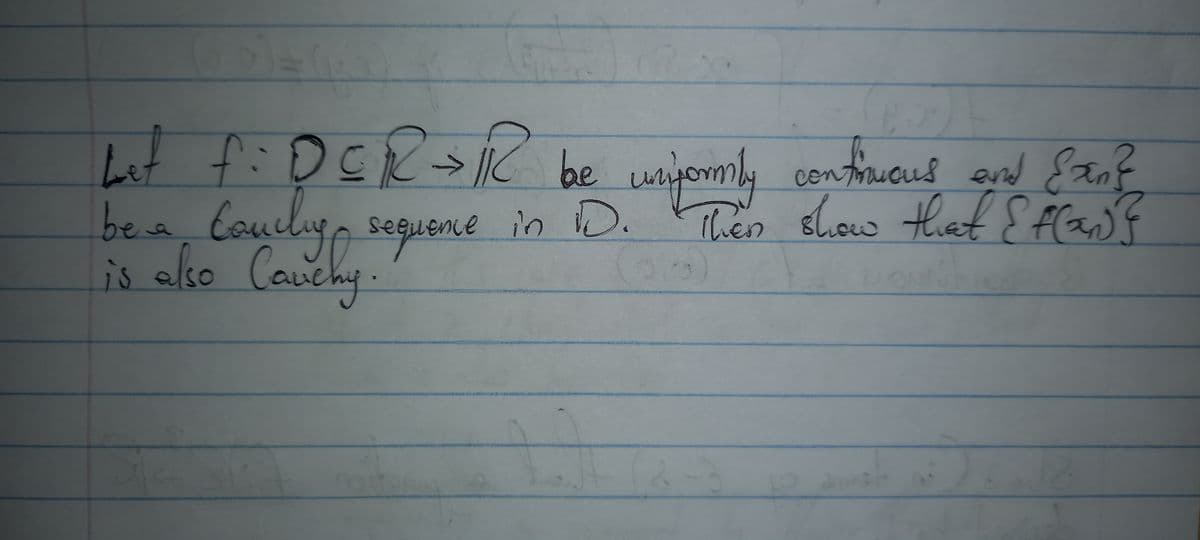 Let f: D ⊆ ℝ → ℝ be uniformly continuous and {xn}
be a Cauchy sequence in D. Then show that {f(xn)}
is also Cauchy.